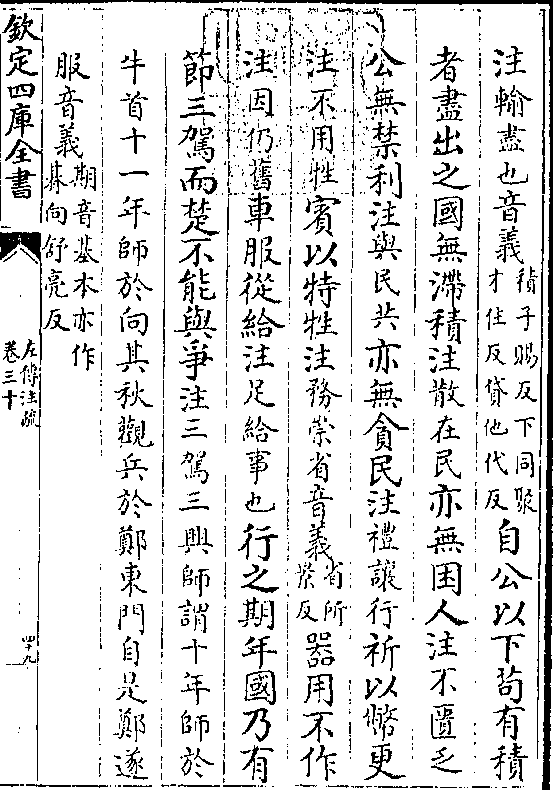 注輸盡也音義積子賜反下同聚才住反貸他代反自公以下苟有積
者盡出之國無滯積注散在民亦無困人注不匱乏
公無禁利注與民共亦無貪民注禮讓行祈以幣更
注不用牲賓以特牲注務崇省音義省所景反器用不作
注因仍舊車服從給注足給事也行之期年國乃有
節三駕而楚不能與爭注三駕三興師謂十年師於
牛首十一年師於向其秋觀兵於鄭東門自是鄭遂
服音義期音基本亦作朞向舒亮反
欽定四庫全書
左傳注疏
卷三十
四十九